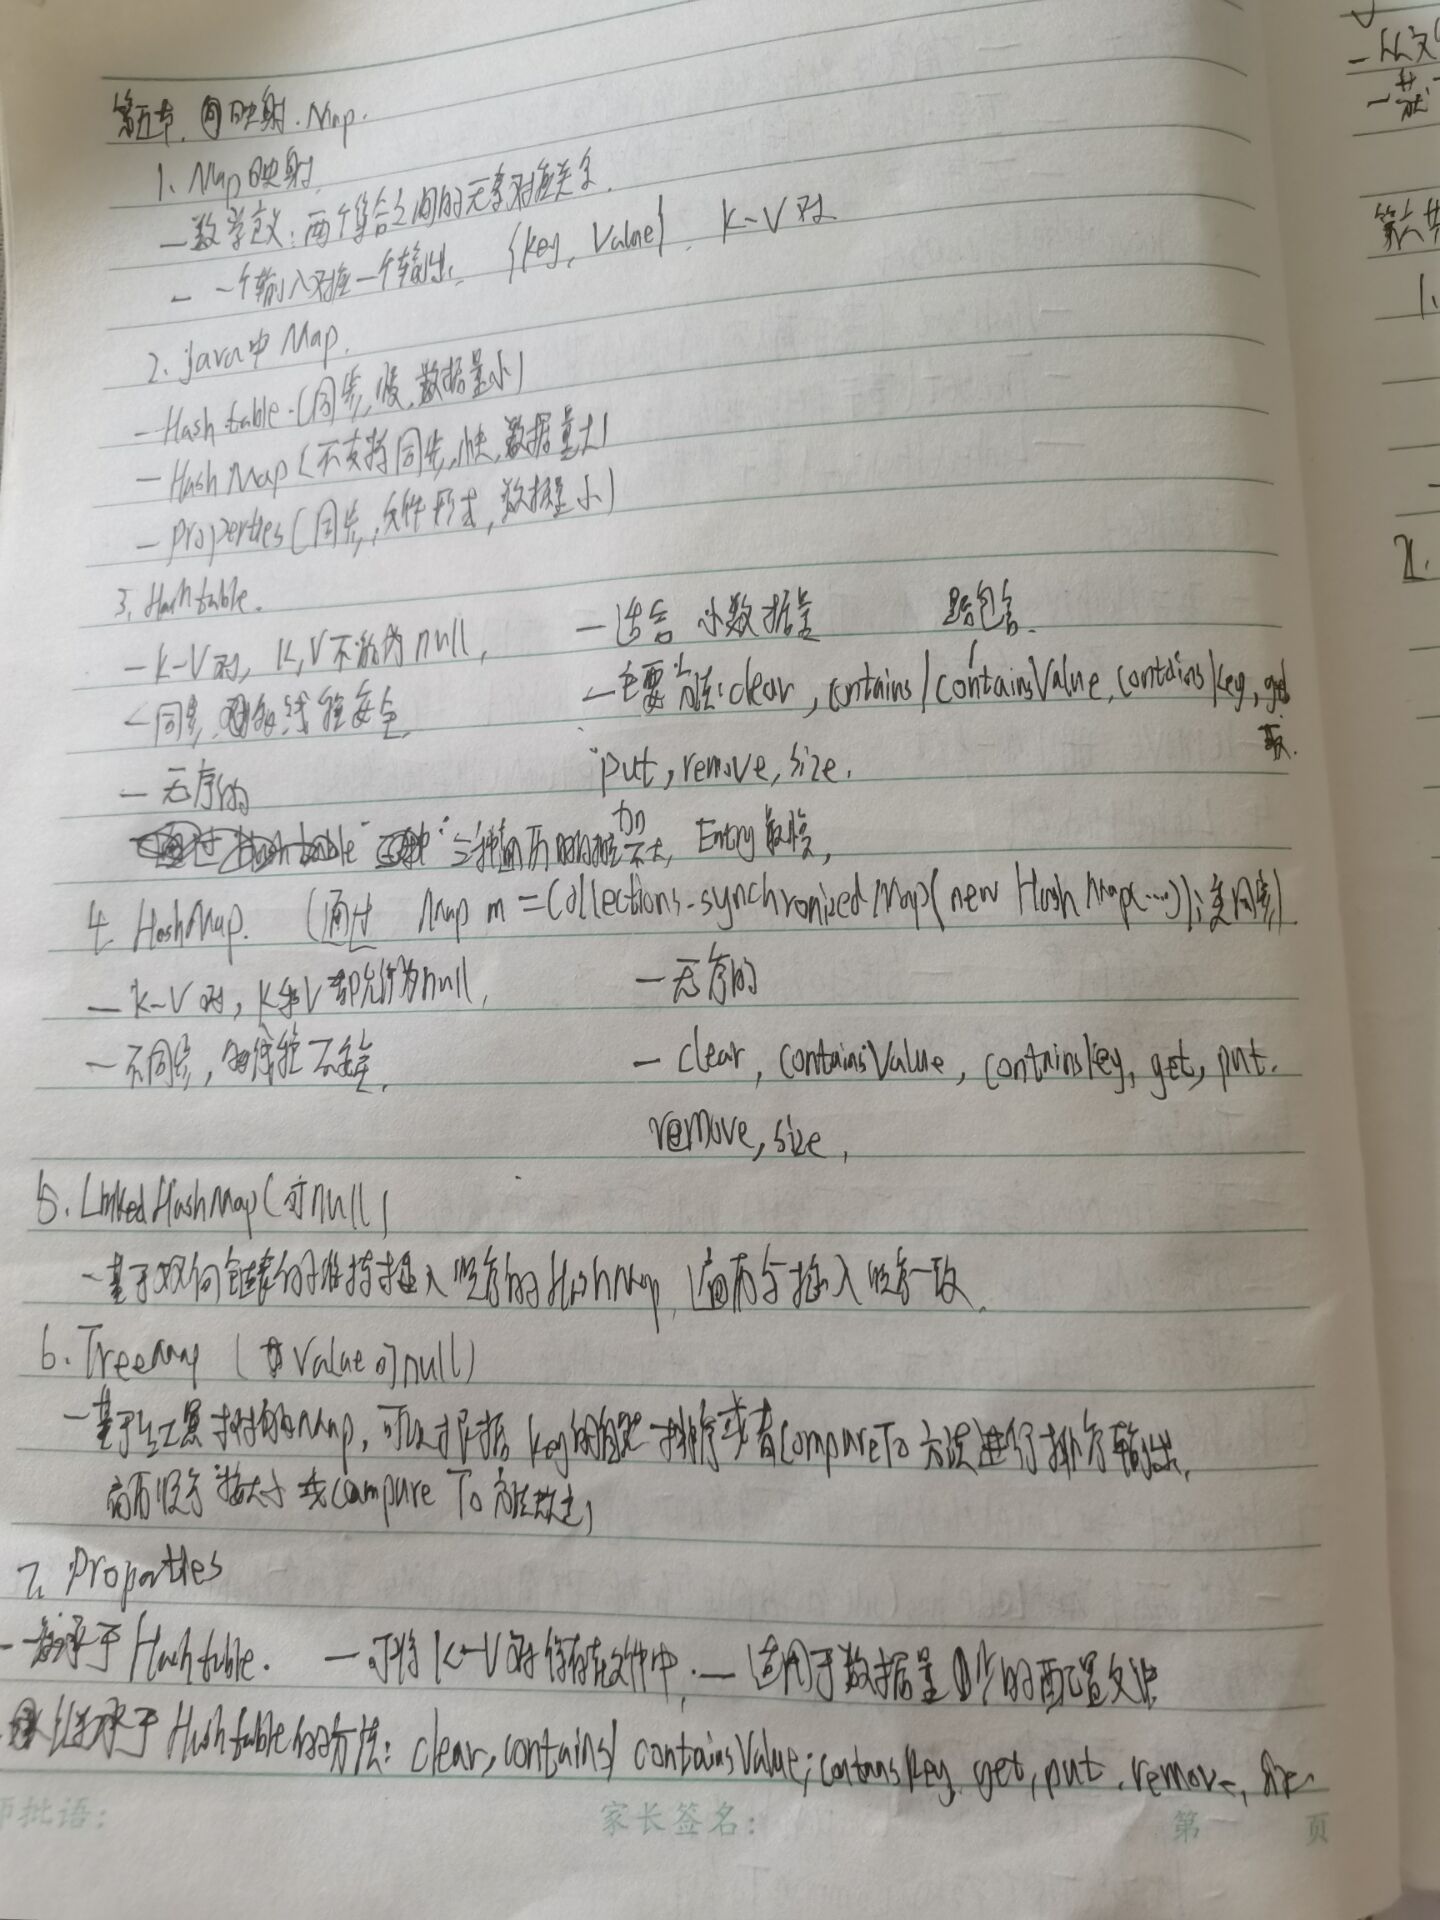 第五章. 映射. Map.
1. Map映射.
— 数学定义: 两个集合之间的元素对应关系.
— 一个输入对应一个输出. {key, Value}. K-V对
2. java中 Map.
— Hashtable.(同步,慢,数据量小)
— HashMap(不支持同步,快,数据量大)
— Properties(同步,文件形式,数据量小)
3. Hashtable.
— K-V对, K,V不能为null, — 适合 小数据量
— 同步, 线程安全. — 主要方法: clear, contains/containsValue, containsKey, get
是否包含. 取.
— 无序的 put, remove, size.
三种遍历 Entry
4. HashMap. (通过 Map m = Collections.synchronizedMap(new HashMap(...));变同步)
— K-V对, K和V都允许为null, — 无序的
— 不同步, 线程不安全. — clear, containsValue, containsKey, get, put.
remove, size,
5. LinkedHashMap(可null)
— 基于双向链表的维持插入顺序的HashMap, 遍历与插入顺序一致.
6. TreeMap (Value可null)
— 基于红黑树的Map, 可以根据 key的自然排序或者compareTo方法进行排序输出.
遍历顺序按大小或campare To方法
7. Properties
— 继承于 Hashtable. — 可将K-V对保存在文件中. — 适用于数据量少的配置文件
继承于Hashtable的方法: clear, contains/ containsValue; containsKey, get, put, remove,
师批语: 家长签名: 第 页